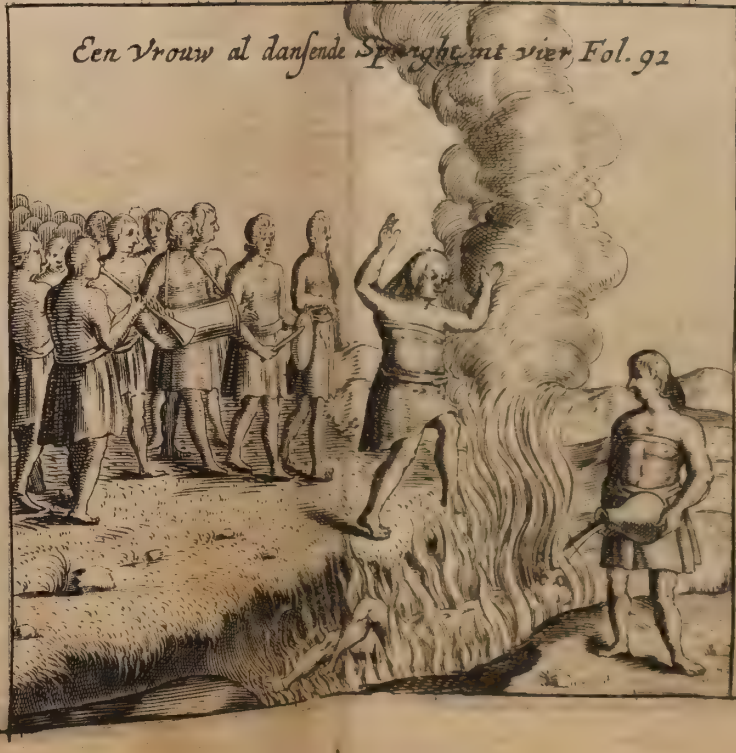 Een Vrouw al danſende Springht int vier Fol. 92